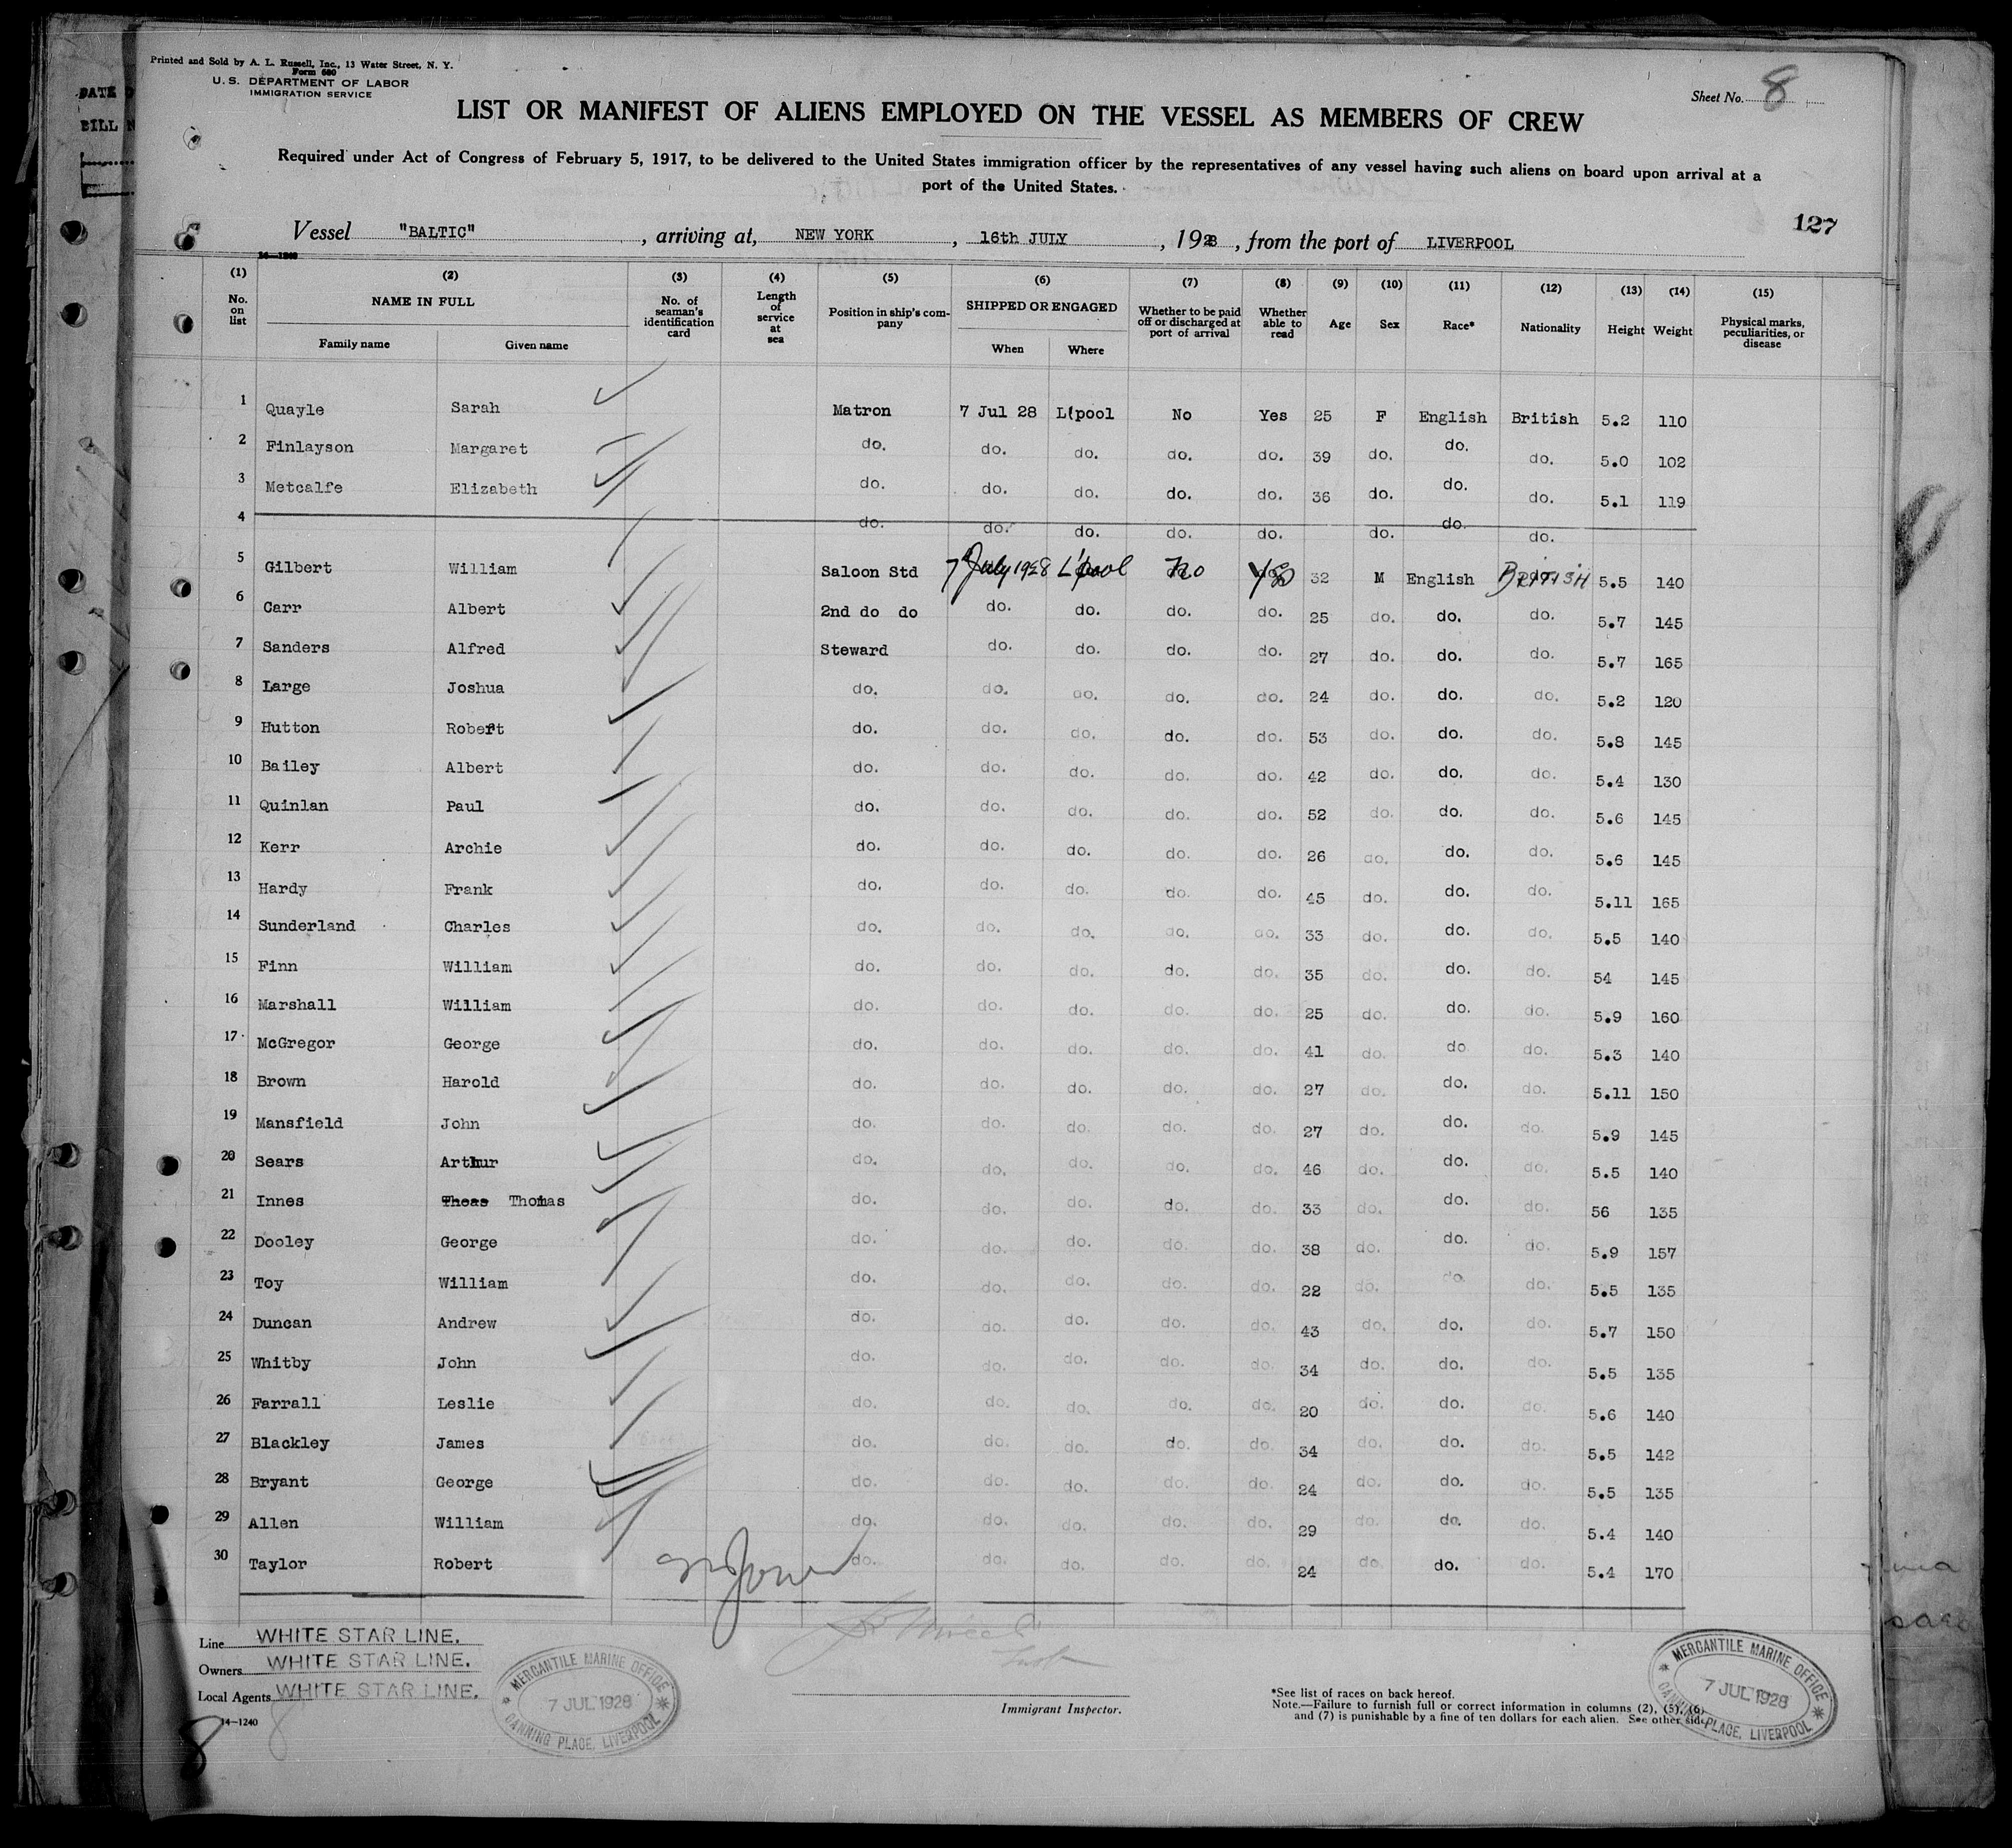 Printed and Sold by A. L. Russell, Inc., 13 Water Street, N. Y.
Form 680
U. S. DEPARTMENT OF LABOR
IMMIGRATION SERVICE
Sheet No. 8
LIST OR MANIFEST OF ALIENS EMPLOYED ON THE VESSEL AS MEMBERS OF CREW
Required under Act of Congress of February 5, 1917, to be delivered to the United States immigration officer by the representatives of any vessel having such aliens on board upon arrival at a
port of the United States.
127
Vessel "BALTIC", arriving at, NEW YORK, 16th JULY, 1928, from the port of LIVERPOOL
14—1240
(1) (2) (3) (4) (5) (6) (7) (8) (9) (10) (11) (12) (13) (14) (15)
No. on list NAME IN FULL Family name Given name No. of seaman's identification card Length of service at sea Position in ship's company SHIPPED OR ENGAGED When Where Whether to be paid off or discharged at port of arrival Whether able to read Age Sex Race* Nationality Height Weight Physical marks, peculiarities, or disease
1 Quayle Sarah Matron 7 Jul 28 L'pool No Yes 25 F English British 5.2 110
2 Finlayson Margaret do. do. do. do. do. 39 do. do. do. 5.0 102
3 Metcalfe Elizabeth do. do. do. do. do. 36 do. do. do. 5.1 119
4 do. do. do. do. do. do. do. do.
5 Gilbert William Saloon Std 7 July 1928 L'pool No Yes 32 M English British 5.5 140
6 Carr Albert 2nd do do do. do. do. do. 25 do. do. do. 5.7 145
7 Sanders Alfred Steward do. do. do. do. 27 do. do. do. 5.7 165
8 Large Joshua do. do. do. do. do. 24 do. do. do. 5.2 120
9 Hutton Robert do. do. do. do. do. 53 do. do. do. 5.8 145
10 Bailey Albert do. do. do. do. do. 42 do. do. do. 5.4 130
11 Quinlan Paul do. do. do. do. do. 52 do. do. do. 5.6 145
12 Kerr Archie do. do. do. do. do. 26 do. do. do. 5.6 145
13 Hardy Frank do. do. do. do. do. 45 do. do. do. 5.11 165
14 Sunderland Charles do. do. do. do. do. 33 do. do. do. 5.5 140
15 Finn William do. do. do. do. do. 35 do. do. do. 54 145
16 Marshall William do. do. do. do. do. 25 do. do. do. 5.9 160
17 McGregor George do. do. do. do. do. 41 do. do do. 5.3 140
18 Brown Harold do. do. do. do. do. 27 do. do. do. 5.11 150
19 Mansfield John do. do. do. do. do. 27 do. do. do. 5.9 145
20 Sears Arthur do. do. do. do. do. 46 do. do. do. 5.5 140
21 Innes Thoas Thomas do. do. do. do. do. 33 do. do. do. 56 135
22 Dooley George do. do. do. do. do. 38 do. do. do. 5.9 157
23 Toy William do. do. do. do. do. 22 do. do. do. 5.5 135
24 Duncan Andrew do. do. do. do. do. 43 do. do. do. 5.7 150
25 Whitby John do. do. do. do. do. 34 do. do. do. 5.5 135
26 Farrall Leslie do. do. do. do. do. 20 do. do. do. 5.6 140
27 Blackley James do. do. do. do. do. 34 do. do. do. 5.5 142
28 Bryant George do. do. do. do. do. 24 do. do. do. 5.5 135
29 Allen William do. do. do. do. do. 29 do. do. do. 5.4 140
30 Taylor Robert do. do. do. do. do. 24 do. do. do. 5.4 170
Line WHITE STAR LINE.
Owners WHITE STAR LINE.
Local Agents WHITE STAR LINE.
14—1240
8 8
MERCANTILE MARINE OFFICE
7 JUL 1928
CANNING PLACE, LIVERPOOL
Immigrant Inspector.
*See list of races on back hereof.
Note.—Failure to furnish full or correct information in columns (2), (5), (6)
and (7) is punishable by a fine of ten dollars for each alien. See other side
MERCANTILE MARINE OFFICE
7 JUL 1928
CANNING PLACE, LIVERPOOL